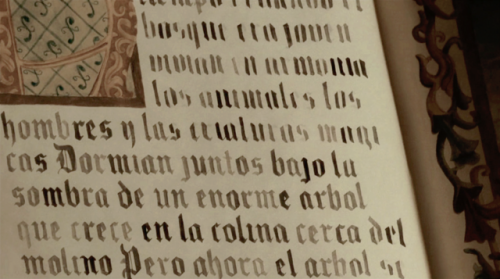 tiempo cuando el
bosque era joven
vivian en armonia
los animales los
hombres y las criaturas magi
cas Dormian juntos bajo la
sombra de un enorme arbol
que crece en la colina cerca del
molino Pero ahora el arbol se